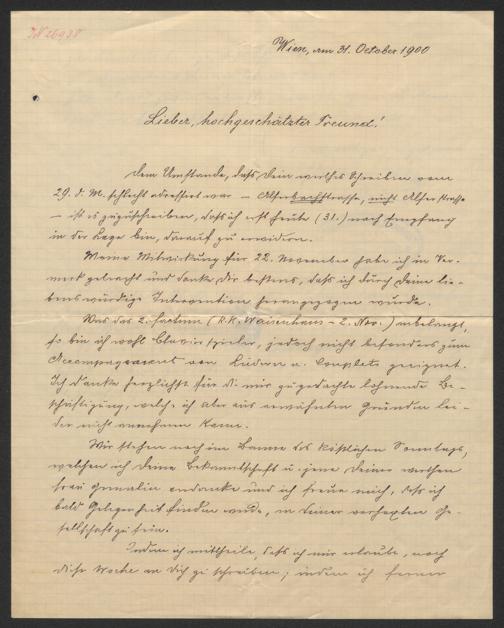 Wien, am 31. October 1900
Lieber, hochgeschätzter Freund!
Dem Umstande, daß Dein werthes Schreiben vom
29. d. M. schlecht adressiert war – Alserbachstrasse, nicht Alserstrasse
– ist es zuzuschreiben, daß ich erst heute (31.) nach Empfang
in der Lage bin, darauf zu erwidern.
Meine Mitwirkung für 22. November habe ich in Vor-
merk gebracht und danke Dir bestens, daß ich durch Deine lie-
benswürdige Intervention herangezogen wurde.
Was das 2. Factum (k. k. Waisenhaus – 2. Nov.) anbelangt,
so bin ich wohl Clavierspieler, jedoch nicht besonders zum
Accompagnement von Liedern u. Couplets geeignet.
Ich danke herzlichst für die mir zugedachte lohnende Be-
schäftigung, welche ich aber aus erwähnten Gründen lei-
der nicht annehmen kann.
Wir stehen noch im Banne des köstlichen Sonntags,
welchem ich Deine Bekanntschaft u. jene Deiner werthen
Frau Gemalin verdanke und ich freue mich, daß ich
bald Gelegenheit finden werde, in Deiner Ge-
sellschaft zu sein.
Indem ich mittheile, daß ich mir erlaube, noch
diese Woche an Dich zu schreiben; indem ich ferner